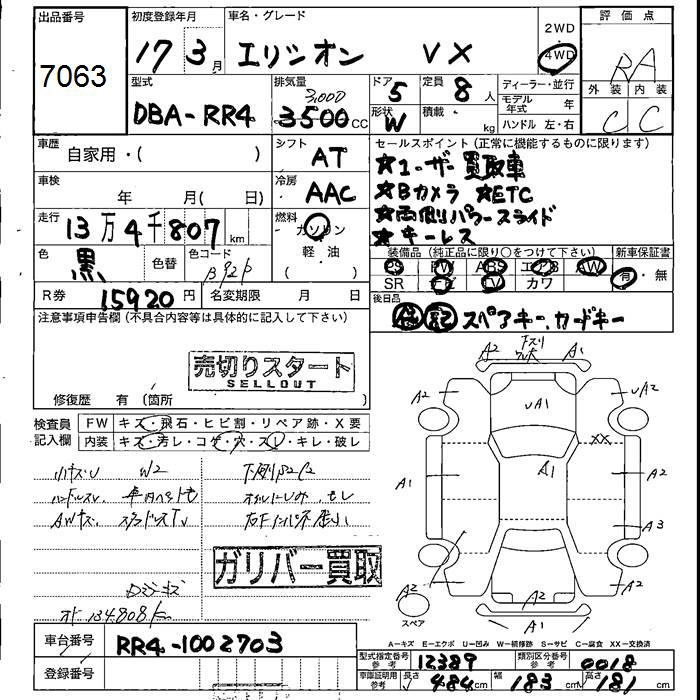 出品番号
7063
初度登録年月
17 3月
車名・グレード
エリシオン VX
2WD
4WD
評価点
RA
外装 内装
C C
型式
DBA-RR4
排気量
3,000
3500cc
ドア 5
形状 W
定員 8人
積載 kg
ディーラー・並行
モデル年式 年
ハンドル 左・右
車歴 自家用・( )
シフト AT
車検 年 月( 日)
冷房 AAC
走行 13万4千807km
燃料 ガソリン
軽・油
( )
色 黒
色替
色コード
B92P
R券 15920円
名変期限 月 日
セールスポイント(正常に機能するものに限ります)
★ユーザー買取車
★Bカメラ ★ETC
★両側パワースライド
★キーレス
装備品(純正品に限り○をつけて下さい)
新車保証書
PS PW ABS エアB AW
SR ナビ TV カワ
有・無
後日品
保 記 スペアキー、カードキー
注意事項申告欄(不具合内容等は具体的に記入して下さい)
売切りスタート
SELLOUT
修復歴 有(箇所 )
検査員記入欄
FW キズ・飛石・ヒビ割・リペア跡・X要
内装 キズ・汚レ・コゲ・穴・スレ・キレ・破レ
小キズU W2
AWキズ
ガリバー買取
134,808k
車台番号 RR4-1002703
登録番号
A2 A1
A2 UA1 UA2
XX
A1 A1
A3
A2 A2 A2
A1
スペア
A2
A=キズ E=エクボ U=凹み W=補修跡 S=サビ C=腐食 XX=交換済
型式指定番号 参考 12389
類別区分番号 参考 0018
車庫証明用 参考 長さ 484cm 幅 183cm 高さ 181cm